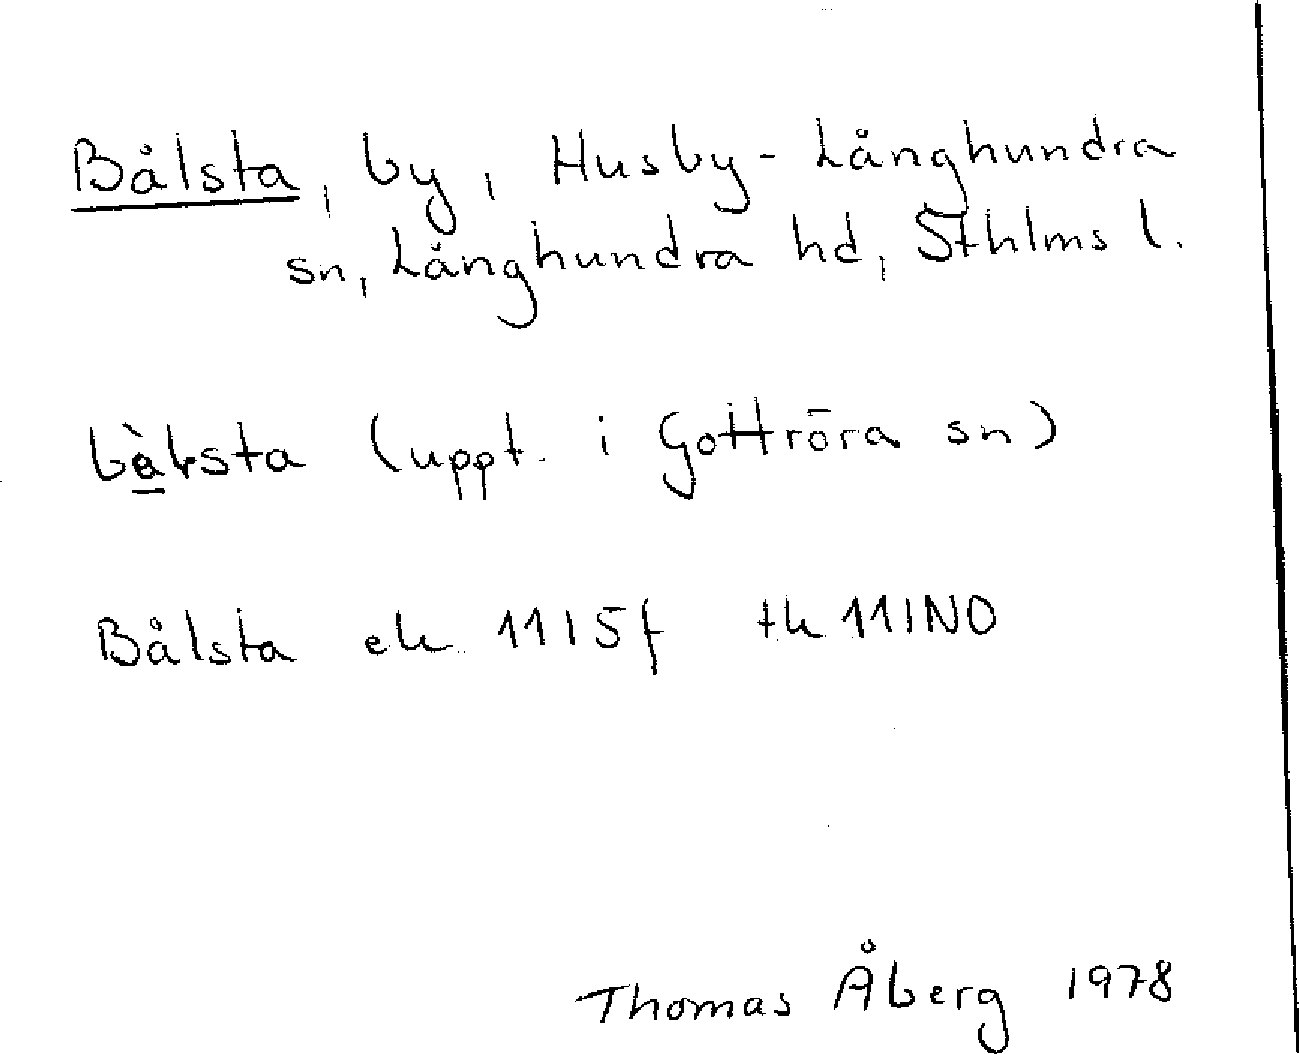 Bålsta, by, Husby-Långhundra
sn, Långhundra hd, Sthlms l.
(uppt. i Gottröra sn)
Bålsta ek 11I5f tk 11INO
Thomas Åberg 1978